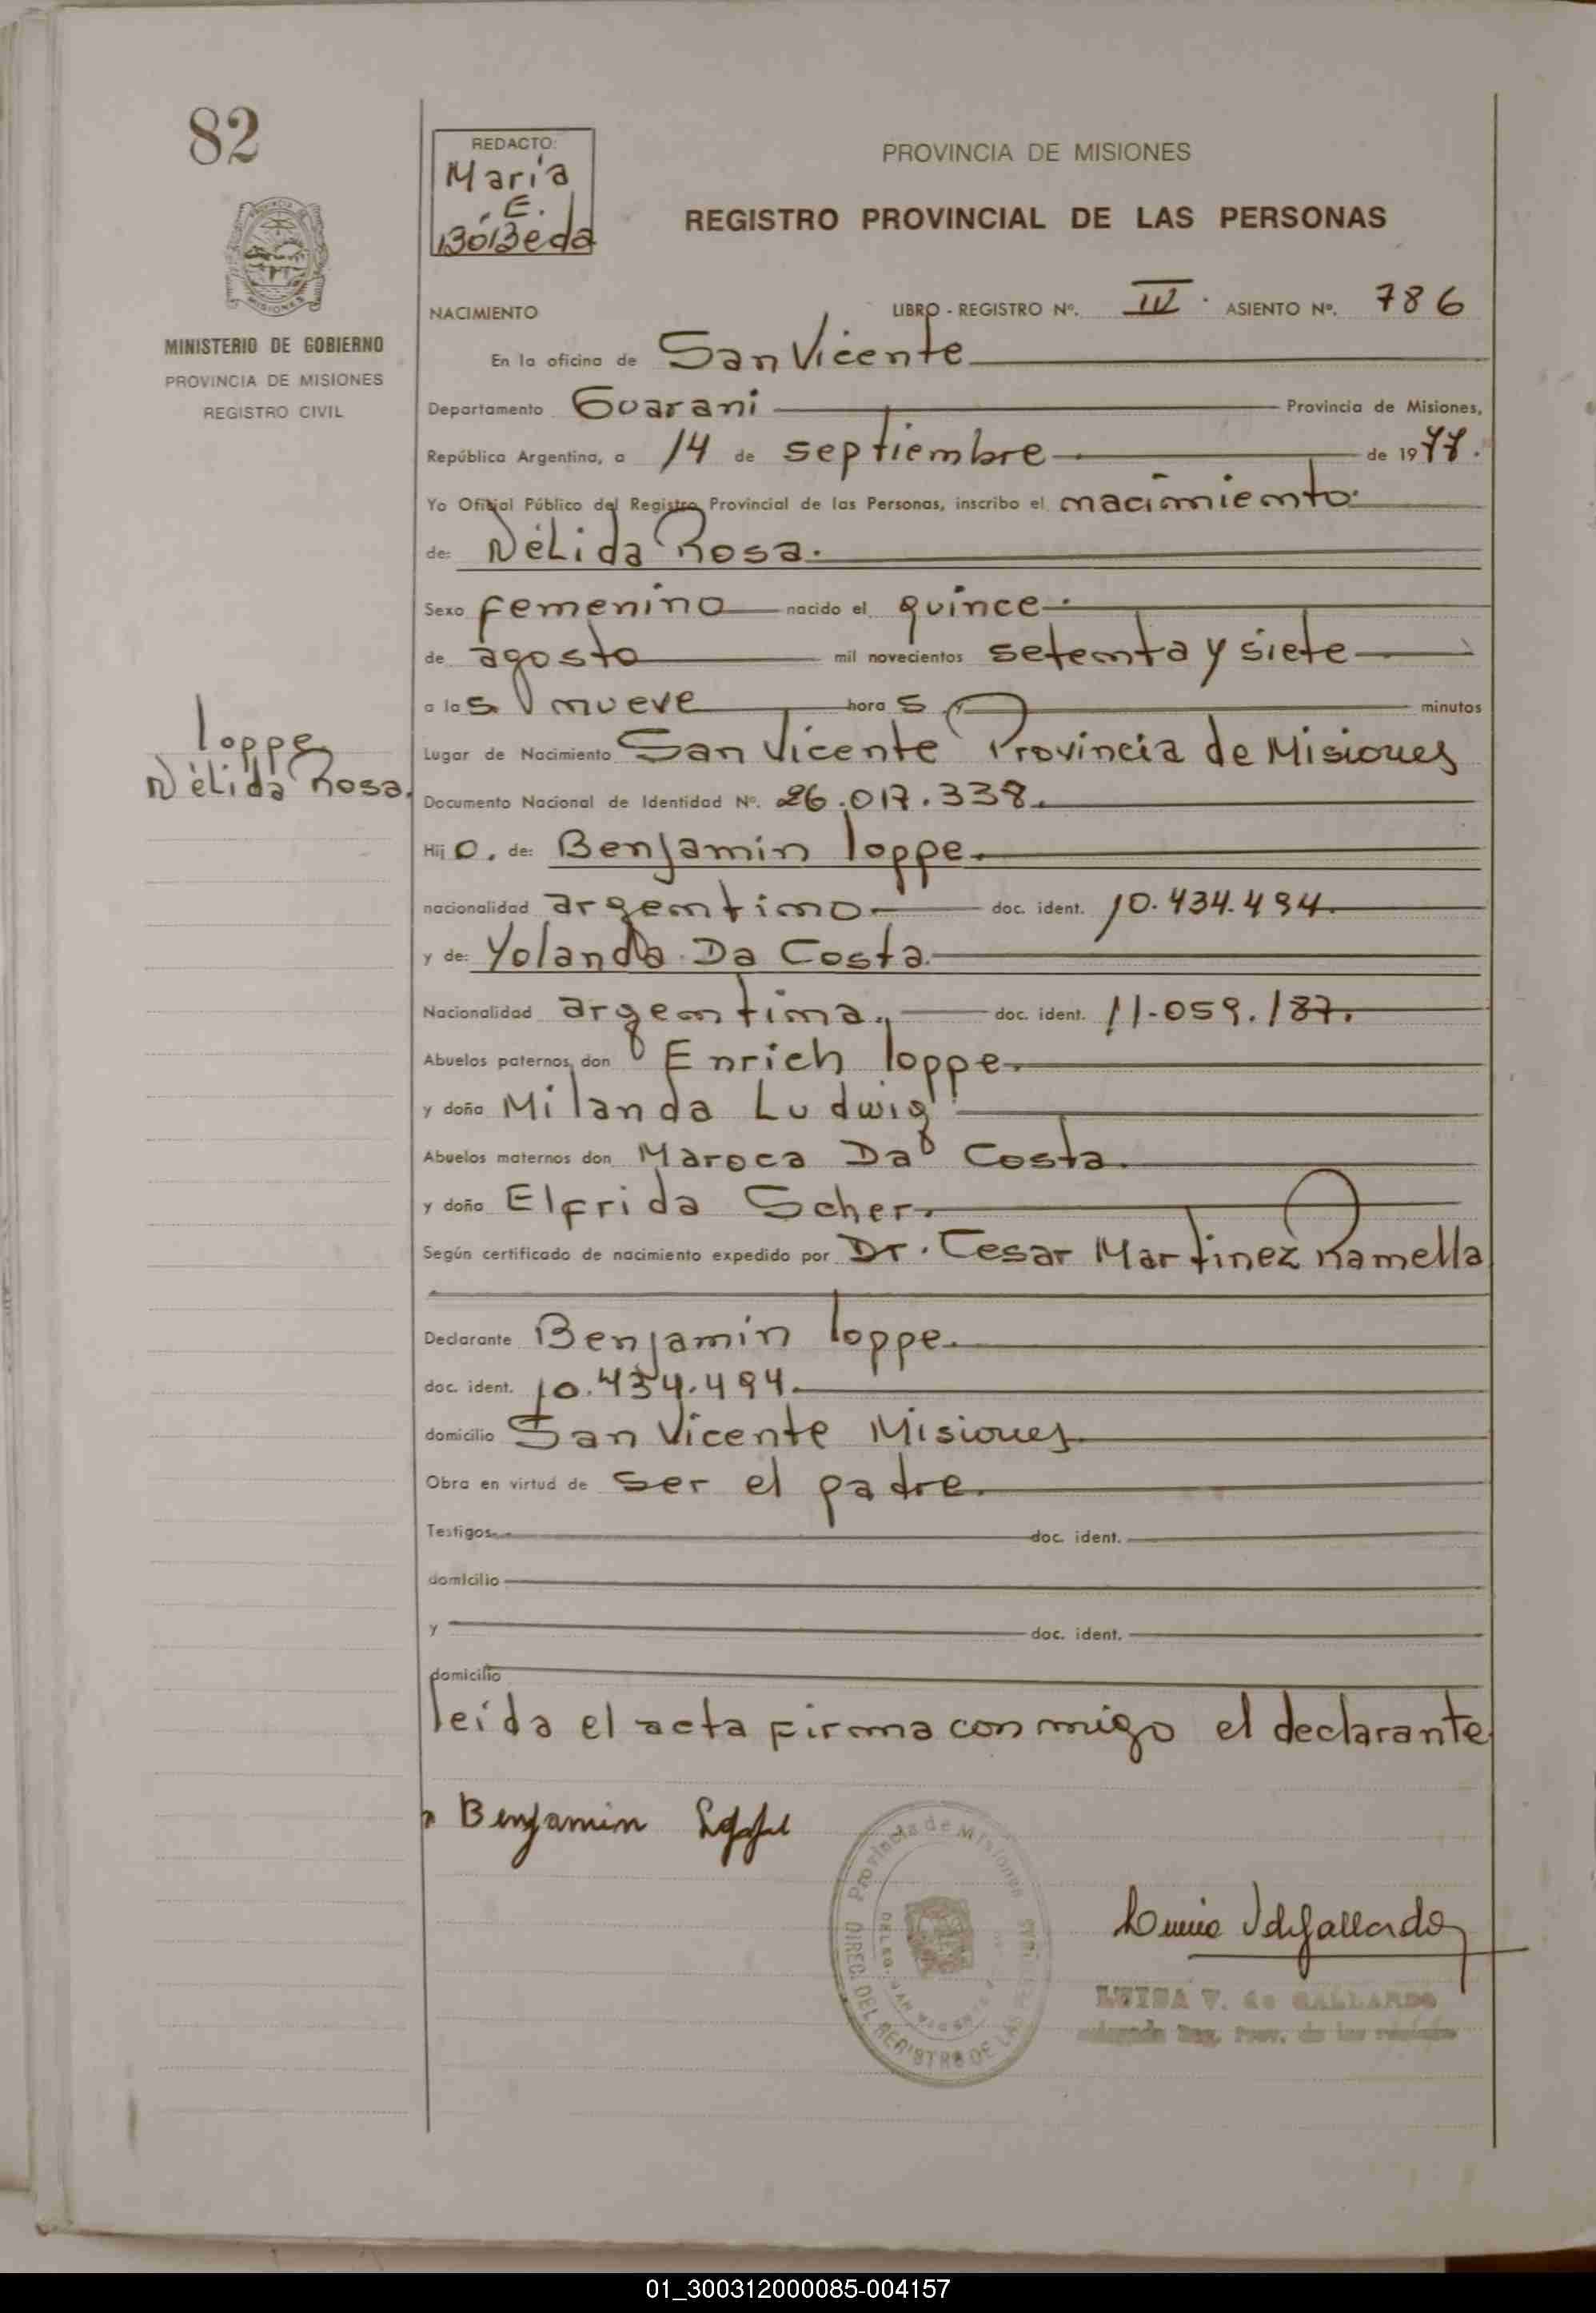 82
REDACTO:
María
E.
BóBeda
PROVINCIA DE MISIONES
REGISTRO PROVINCIAL DE LAS PERSONAS
MINISTERIO DE GOBIERNO
PROVINCIA DE MISIONES
REGISTRO CIVIL
NACIMIENTO LIBRO - REGISTRO Nº. ASIENTO Nº. 786
En la oficina de San Vicente
Departamento Guarani Provincia de Misiones,
República Argentina, a 14 de septiembre de 1977.
Yo Oficial Público del Registro Provincial de las Personas, inscribo el nacimiento
de: Nélida Rosa.
Sexo femenino nacido el quince
de agosto mil novecientos setenta y siete
a las nueve horas y minutos
Lugar de Nacimiento San Vicente Provincia de Misiones
Documento Nacional de Identidad Nº. 26.017.338.
Hijo. de: Benjamin loppe.
nacionalidad argentino doc. ident. 10.434.494.
y de: Yolanda Da Costa.
Nacionalidad argentina. doc. ident. 11.059.187.
Abuelos paternos, don Enrich loppe.
y doña Milanda Ludwig
Abuelos maternos don Maroca Da Costa.
y doña Elfrida Scher.
Según certificado de nacimiento expedido por Dr. Cesar Martinez Ramella
Declarante Benjamin loppe.
doc. ident. 10.434.494.
domicilio San Vicente Misiones
Obra en virtud de ser el padre.
Testigos doc. ident.
domicilio
y doc. ident.
domicilio
leída el acta firma conmigo el declarante
loppe
Nélida Rosa.
Benjamin
Provincia de Misiones
DIREC. DEL REGISTRO DE LAS
LUISA V. de GALLARDO
Reg. Prov. de las
01_300312000085-004157